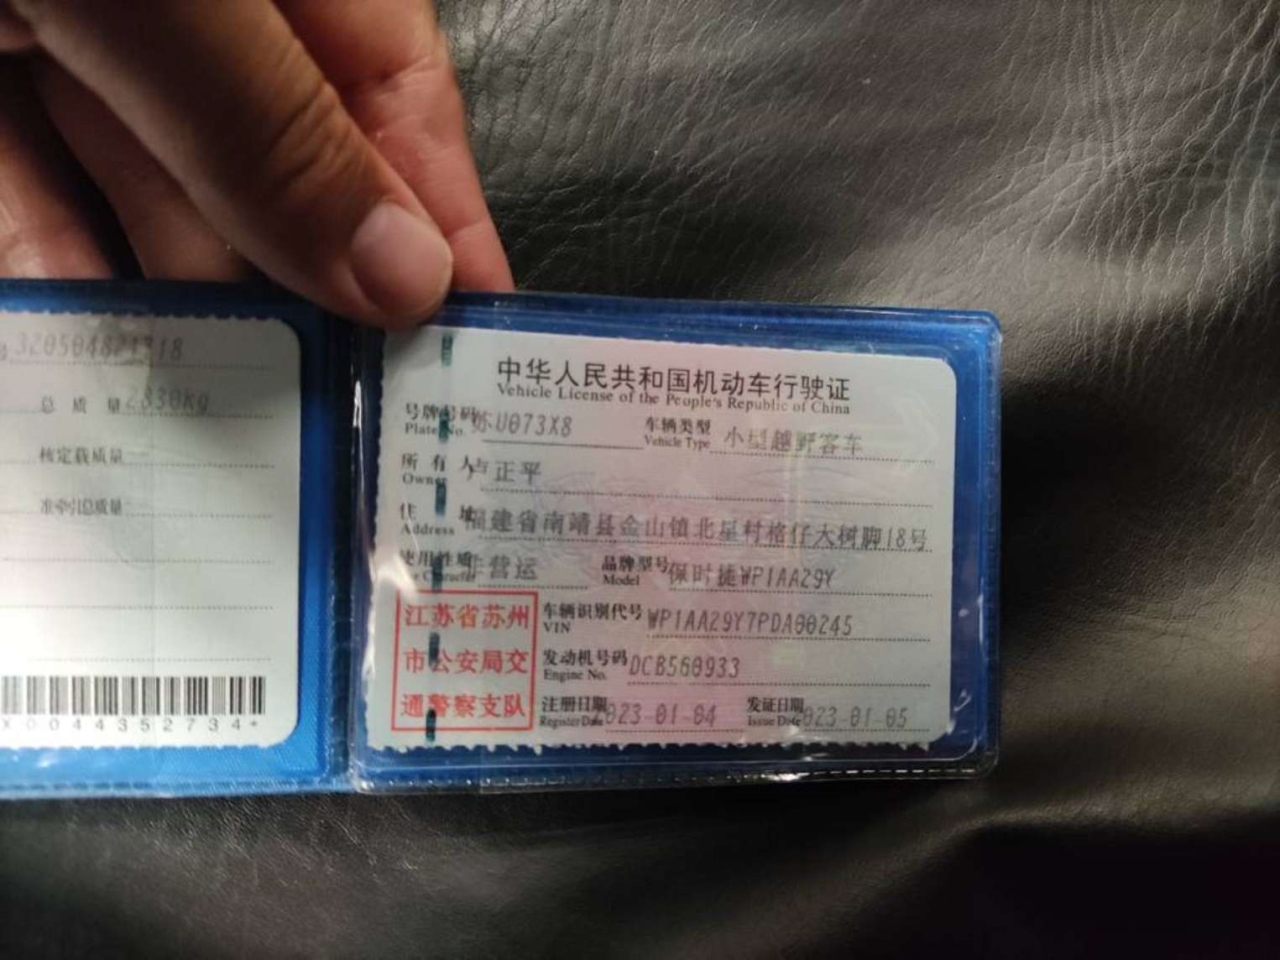 320504821318
总 质 量 2830kg
核定载质量
准牵引总质量
X0044352734*
中华人民共和国机动车行驶证
Vehicle License of the People's Republic of China
号牌号码 苏U073X8 车辆类型 小型越野客车
Plate No. Vehicle Type
所 有 人 卢正平
Owner
住 址 福建省南靖县金山镇北星村格仔大树脚18号
Address
使用性质 非营运 品牌型号 保时捷WP1AA29Y
Use Character Model
江苏省苏州
市公安局交
通警察支队
车辆识别代号 WP1AA29Y7PDA00245
VIN
发动机号码 DCB560933
Engine No.
注册日期 023-01-04 发证日期 023-01-05
Register Date Issue Date